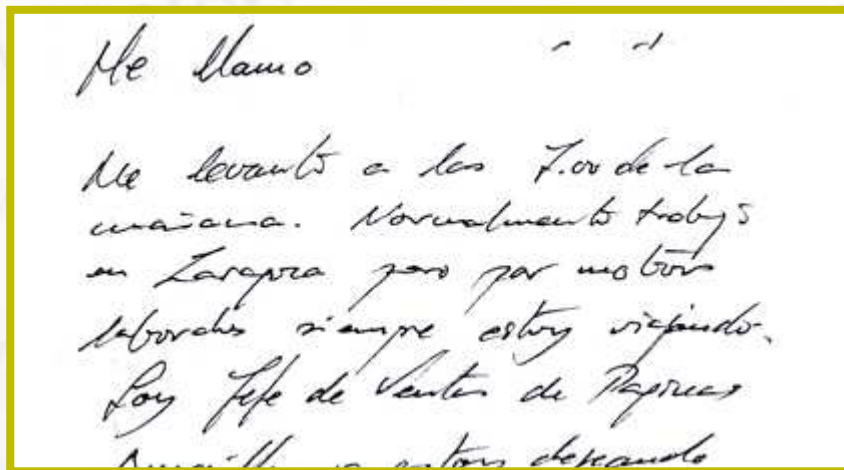 Me llamo
Me levanto a las 7.00 de la
mañana. Normalmente trabajo
en Zaragoza pero por motivos
laborales siempre estoy viajando.
Soy Jefe de Ventas de Páginas
Amarillas estoy deseando